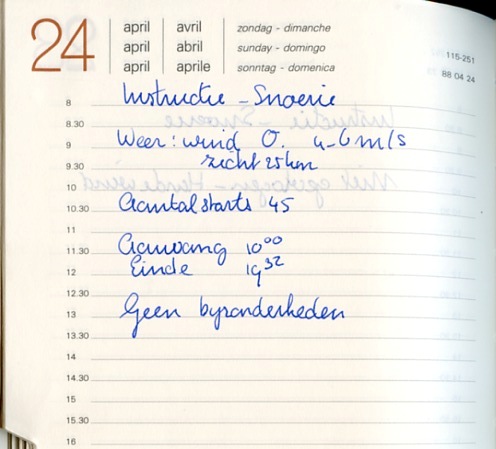 24
april avril zondag - dimanche
april abril sunday - domingo
april aprile sonntag - domenica
115-251
88 04 24
8 Instructie - Snoerie
8.30
9 Weer: wind O. 4-6 m/s
9.30 zicht 25 km
10
10.30 Aantal starts 45
11
11.30 Aanvang 10⁰⁰
12 Einde 19³²
12.30
13 Geen byzonderheden
13.30
14
14.30
15
15.30
16